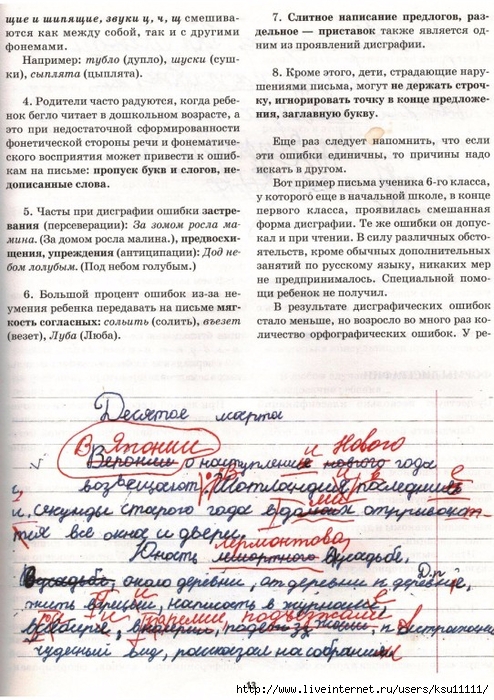 щие и шипящие, звуки ц, ч, щ смешива-
ются как между собой, так и с другими
фонемами.
Например: тубло (дупло), шуски (суш-
ки), сыплята (цыплята).
4. Родители часто радуются, когда ребе-
нок бегло читает в дошкольном возрасте, а
это при недостаточной сформированности
фонетической стороны речи и фонематиче-
ского восприятия может привести к ошиб-
кам на письме: пропуск букв и слогов, не-
дописанные слова.
5. Часты при дисграфии ошибки застре-
вания (персеверации): За зомом росла ма-
мина. (За домом росла малина.), предвосхи-
щения, упреждения (антиципации): Дод не-
бом лолубым. (Под небом голубым.)
6. Большой процент ошибок из-за не-
умения ребенка передавать на письме мяг-
кость согласных: сольить (солить), въезет
(везет), Луба (Люба).
7. Слитное написание предлогов, раз-
дельное — приставок также является од-
ним из проявлений дисграфии.
8. Кроме этого, дети, страдающие нару-
шениями письма, могут не держать строч-
ку, игнорировать точку в конце предложе-
ния, заглавную букву.
Еще раз следует напомнить, что если
эти ошибки единичны, то причины надо
искать в другом.
Вот пример письма ученика 6-го класса,
у которого еще в начальной школе, в конце
первого класса, проявилась смешанная
форма дисграфии. Те же ошибки он допус-
кал и при чтении. В силу различных обсто-
ятельств, кроме обычных дополнительных
занятий по русскому языку, никаких мер
не предпринималось. Специальной помо-
щи ребенок не получил.
В результате дисграфических ошибок
стало меньше, но возросло во много раз ко-
личество орфографических ошибок. У ре-
Десятое марта
В Японии и Нового
о наступлении нового года
возвещают
секунды старого года
все окна и двери.
Лермонтова
Юность
около деревни, от деревни к деревне,
жить
подъезжаем
чудесный вид, рассказал на собрании
43
http://www.liveinternet.ru/users/ksu11111/